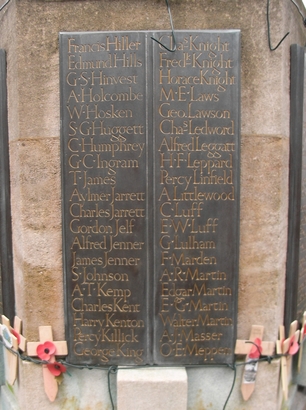 Francis Hiller
Edmund Hills
G·S·Hinvest
A·Holcombe
W·Hosken
S·G·Huggett
C·Humphrey
G·C·Ingram
T·James
Aylmer Jarrett
Charles Jarrett
Gordon Jelf
Alfred Jenner
James Jenner
S·Johnson
A·T·Kemp
Charles Kent
Harry Kenton
Percy Killick
George King
Chas Knight
Fredk Knight
Horace Knight
M·E·Laws
Geo Lawson
Chas Ledword
Alfred Leggatt
H·F·Leppard
Percy Linfield
A·Littlewood
C·Luff
E·W·Luff
G·Lulham
F·Marden
A·K·Martin
Edgar Martin
E·G·Martin
Walter Martin
Masser
O·E·Mepper